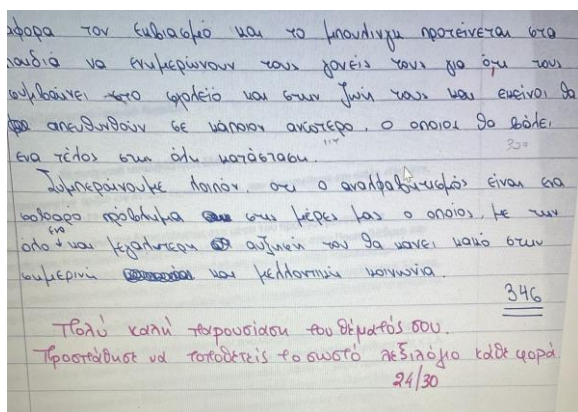 αφορα τον εκβιασμό και το μπουλινγκ προτείνεται στα
παιδιά να ενημερώνουν τους γονείς τους για ότι τους
συμβαίνει στο σχολείο και στην ζωή τους και εκείνοι θα
απευθυνθούν σε κάποιον ανώτερο, ο οποίος θα βάλει
ένα τέλος στην όλη κατάσταση.
Συμπεραίνουμε λοιπόν, οτι ο αναλφαβητισμός είναι ενα
σοβαρό πρόβλημα στις μέρες μας ο οποίος, με την
όλο ενα και μεγαλύτερη αυξηση του θα κανει κακό στην
σημερινή και μελλοντική κοινωνία.
346
Πολύ καλή παρουσίαση του θέματός σου.
Προσπάθησε να τοποθετείς το σωστό λεξιλόγιο κάθε φορά.
24/30